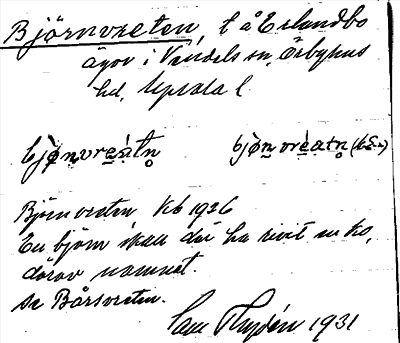 Björnvreten, l å Erlandbo
ägor i Vendels sn, Örbyhus
hd, Uppsala l
bjø̀n̥vrèatn̥ bjø̀n̥vrèatn̥
Björnvreten Kb 1926
En björn skall där ha rivit en ko,
därav namnet.
se Bårsvreten.
1931